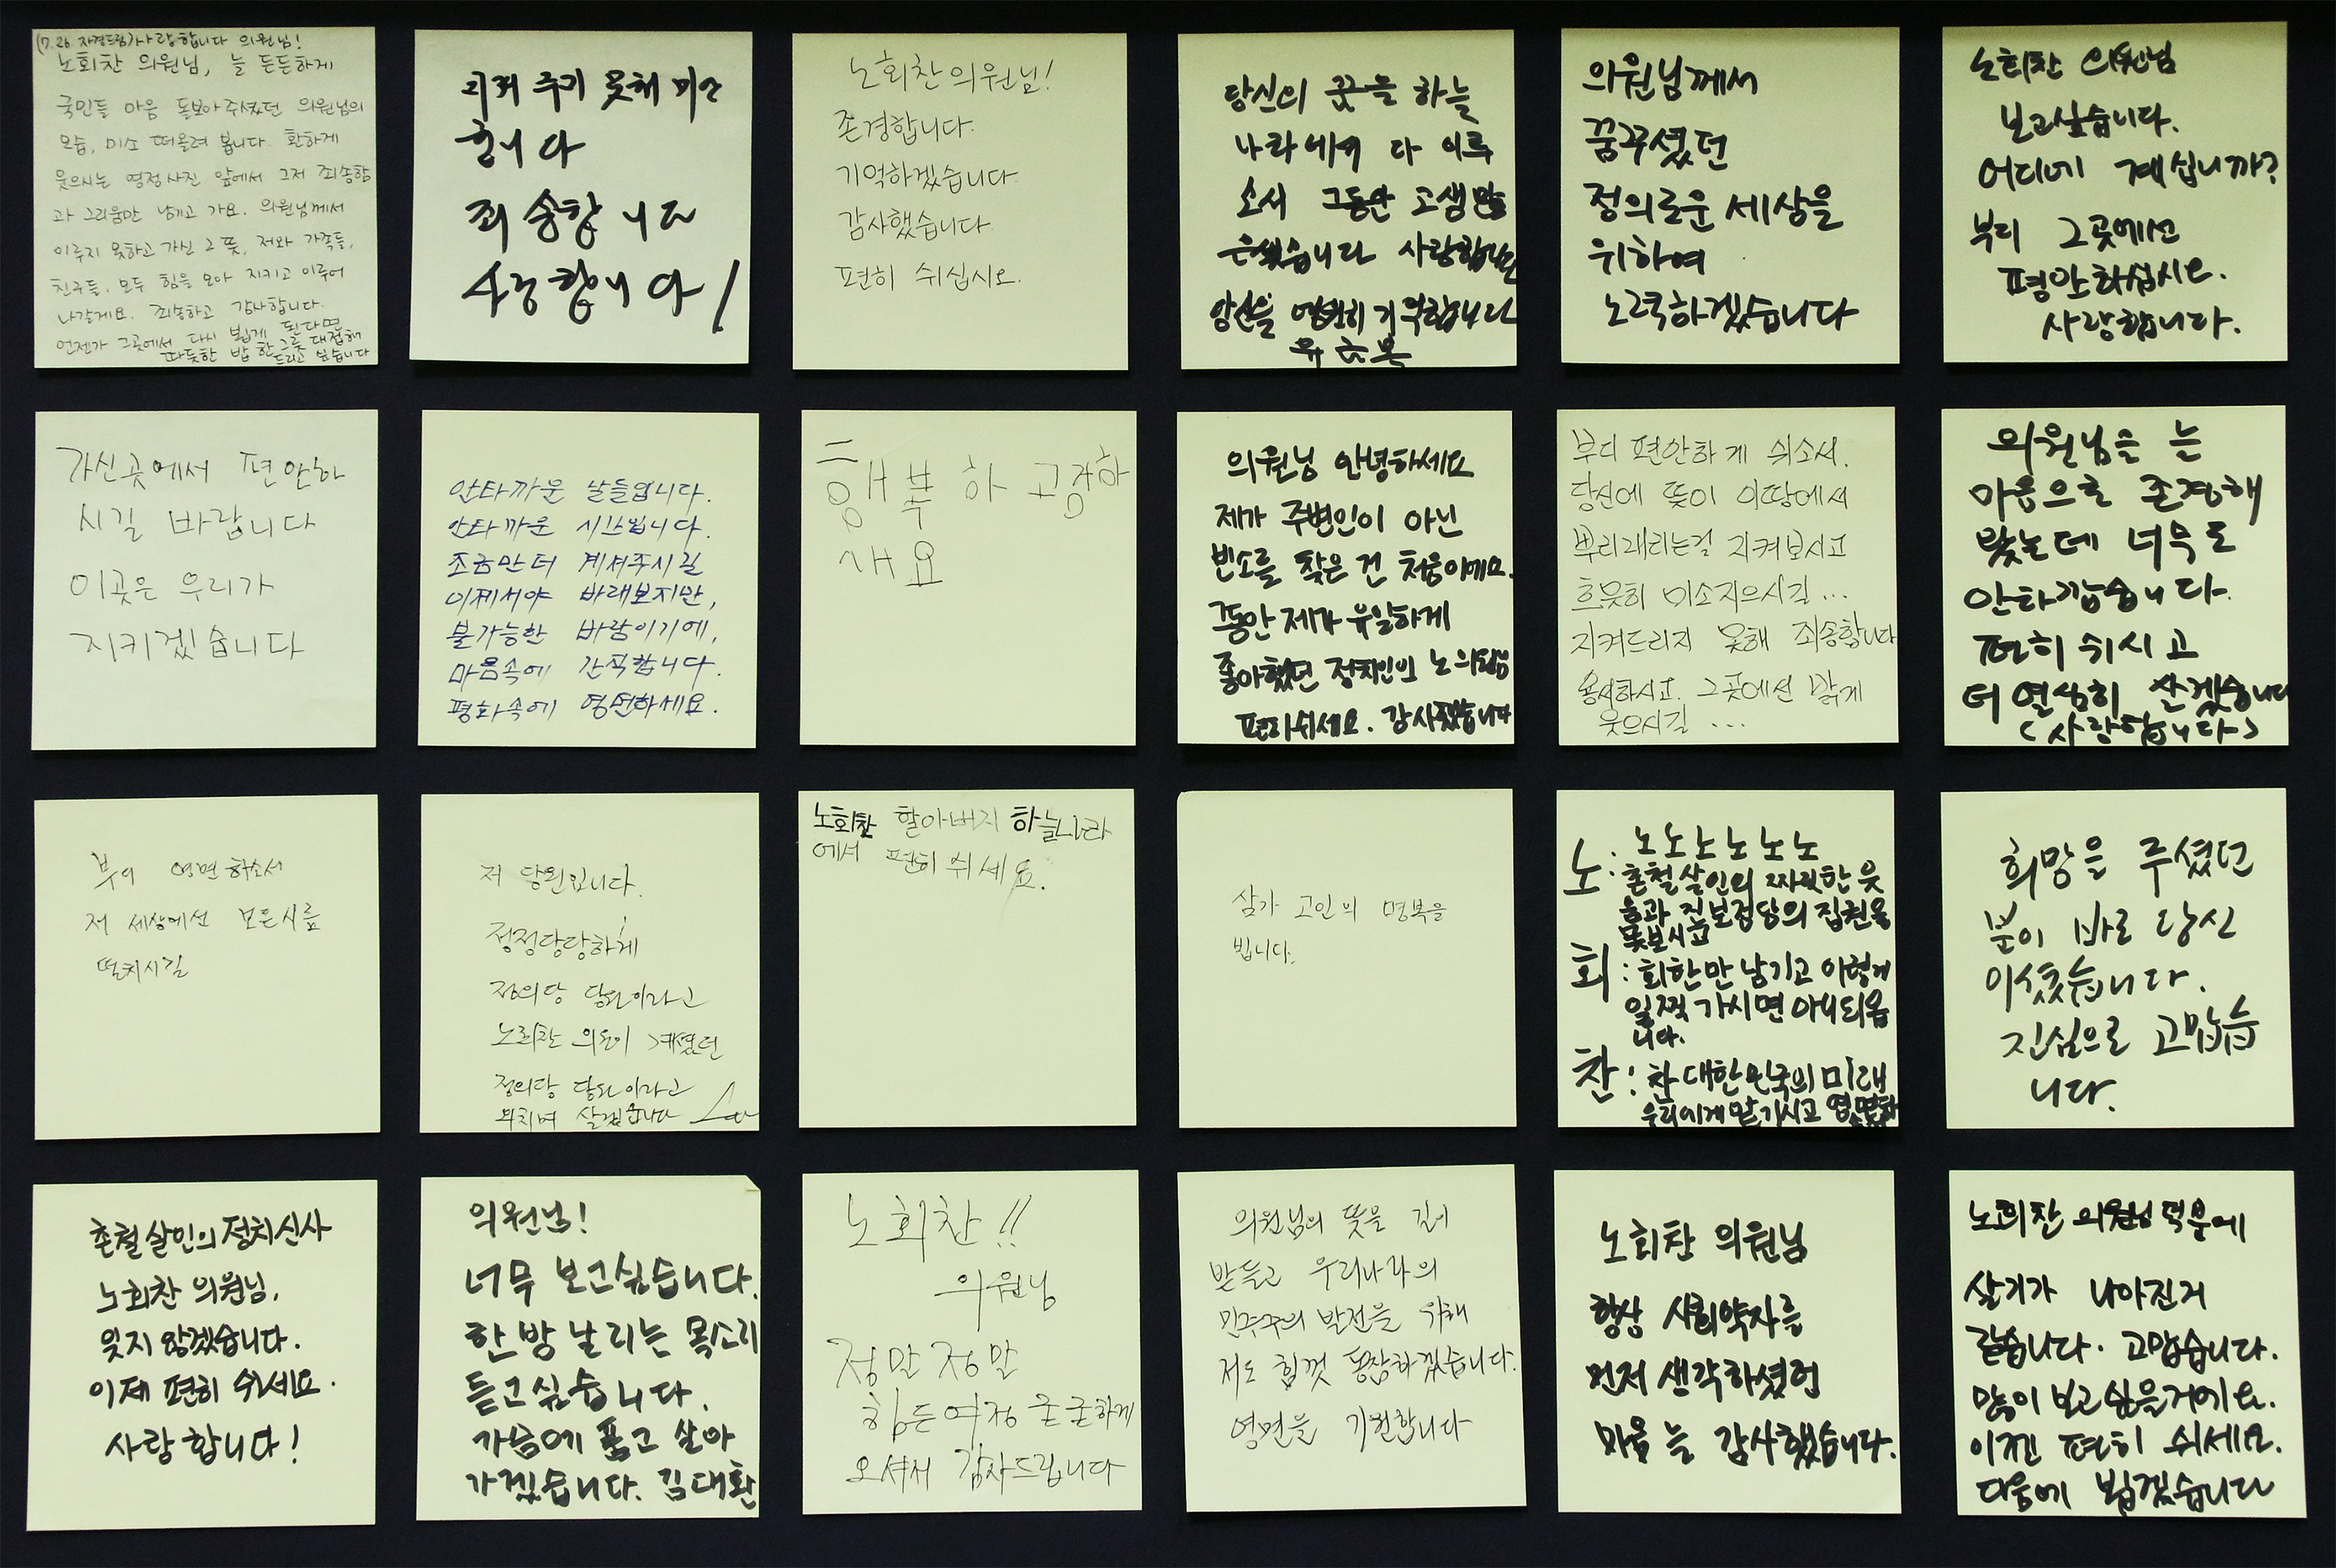 (7.26. 자정드림) 사랑합니다 의원님!
노회찬 의원님, 늘 든든하게
국민들 마음 돌보아주셨던 의원님의
모습, 미소 떠올려 봅니다. 환하게
웃으시는 영정사진 앞에서 그저 죄송함
과 그리움만 남기고 가요. 의원님께서
이루지 못하고 가신 그 뜻, 저와 가족들,
친구들, 모두 힘을 모아 지키고 이루어
나갈게요. 죄송하고 감사합니다.
언젠가 그곳에서 다시 뵙게 된다면
따뜻한 밥 한그릇 대접해
드리고 싶습니다
지켜 주지 못해 미안
합니다
죄송합니다
사랑합니다!
노회찬의원님!
존경합니다.
기억하겠습니다
감사했습니다
편히 쉬십시오.
당신의 꿈을 하늘
나라에서 다 이루
소서 그동안 고생 많
은셨습니다 사랑합니다
당신을 영원히 기억합니다
의원님께서
꿈꾸셨던
정의로운 세상을
위하여
노력하겠습니다
노회찬 의원님
보고싶습니다.
어디에 계십니까?
부디 그곳에선
평안하십시오.
사랑합니다.
가신곳에서 편안하
시길 바랍니다
이곳은 우리가
지키겠습니다
안타까운 날들입니다.
안타까운 시간입니다.
조금만 더 계셔주시길
이제서야 바래보지만,
불가능한 바람이기에,
마음속에 간직합니다.
평화속에 영면하세요.
행복하고 장하
새요
의원님 안녕하세요
제가 주변인이 아닌
빈소를 찾은 건 처음이에요.
그동안 제가 유일하게
좋아했던 정치인의 노의원님
편히쉬세요. 감사했습니다
부디 편안하게 쉬소서.
당신에 뜻이 이땅에서
뿌리내리는걸 지켜보시고
흐뭇히 미소지으시길...
지켜드리지 못해 죄송합니다
용서하시고, 그곳에선 밝게
웃으시길...
의원님을 늘
마음으로 존경해
왔는데 너무도
안타깝습니다.
편히 쉬시고
더 열심히 살겠습니다
(사랑합니다)
부디 영면하소서
저 세상에선 모든시름
떨치시길
저 당원입니다.
정정당당하게
정의당 당원이라고
노회찬 의원이 계셨던
정의당 당원이라고
외치며 살겠습니다
노회찬 할아버지 하늘나라
에서 편히 쉬세요.
삼가 고인의 명복을
빕니다.
노: 노노노노노노
촌철살인의 짜릿한 웃
음과 진보정당의 집권을
못보시고
회: 회한만 남기고 이렇게
일찍 가시면 아니되옵
니다.
찬: 찬 대한민국의 미래
우리에게 맡기시고 영면하
희망을 주셨던
분이 바로 당신
이셨습니다.
진심으로 고맙습
니다.
촌철살인의 정치신사
노회찬 의원님,
잊지 않겠습니다.
이제 편히 쉬세요.
사랑합니다!
의원님!
너무 보고싶습니다.
한방 날리는 목소리
듣고싶습니다.
가슴에 품고 살아
가겠습니다. 김대환
노회찬!!
의원님
정말 정말
힘든여정 꿋꿋하게
오셔서 감사드립니다
의원님의 뜻을 깊이
받들고 우리나라의
민주주의 발전을 위해
저도 힘껏 동참하겠습니다.
영면을 기원합니다
노회찬 의원님
항상 사회약자를
먼저 생각하셨던
마음 늘 감사했습니다.
노회찬 의원님 덕분에
살기가 나아진거
같습니다. 고맙습니다.
많이 보고싶을거에요.
이젠 편히 쉬세요.
다음에 뵙겠습니다